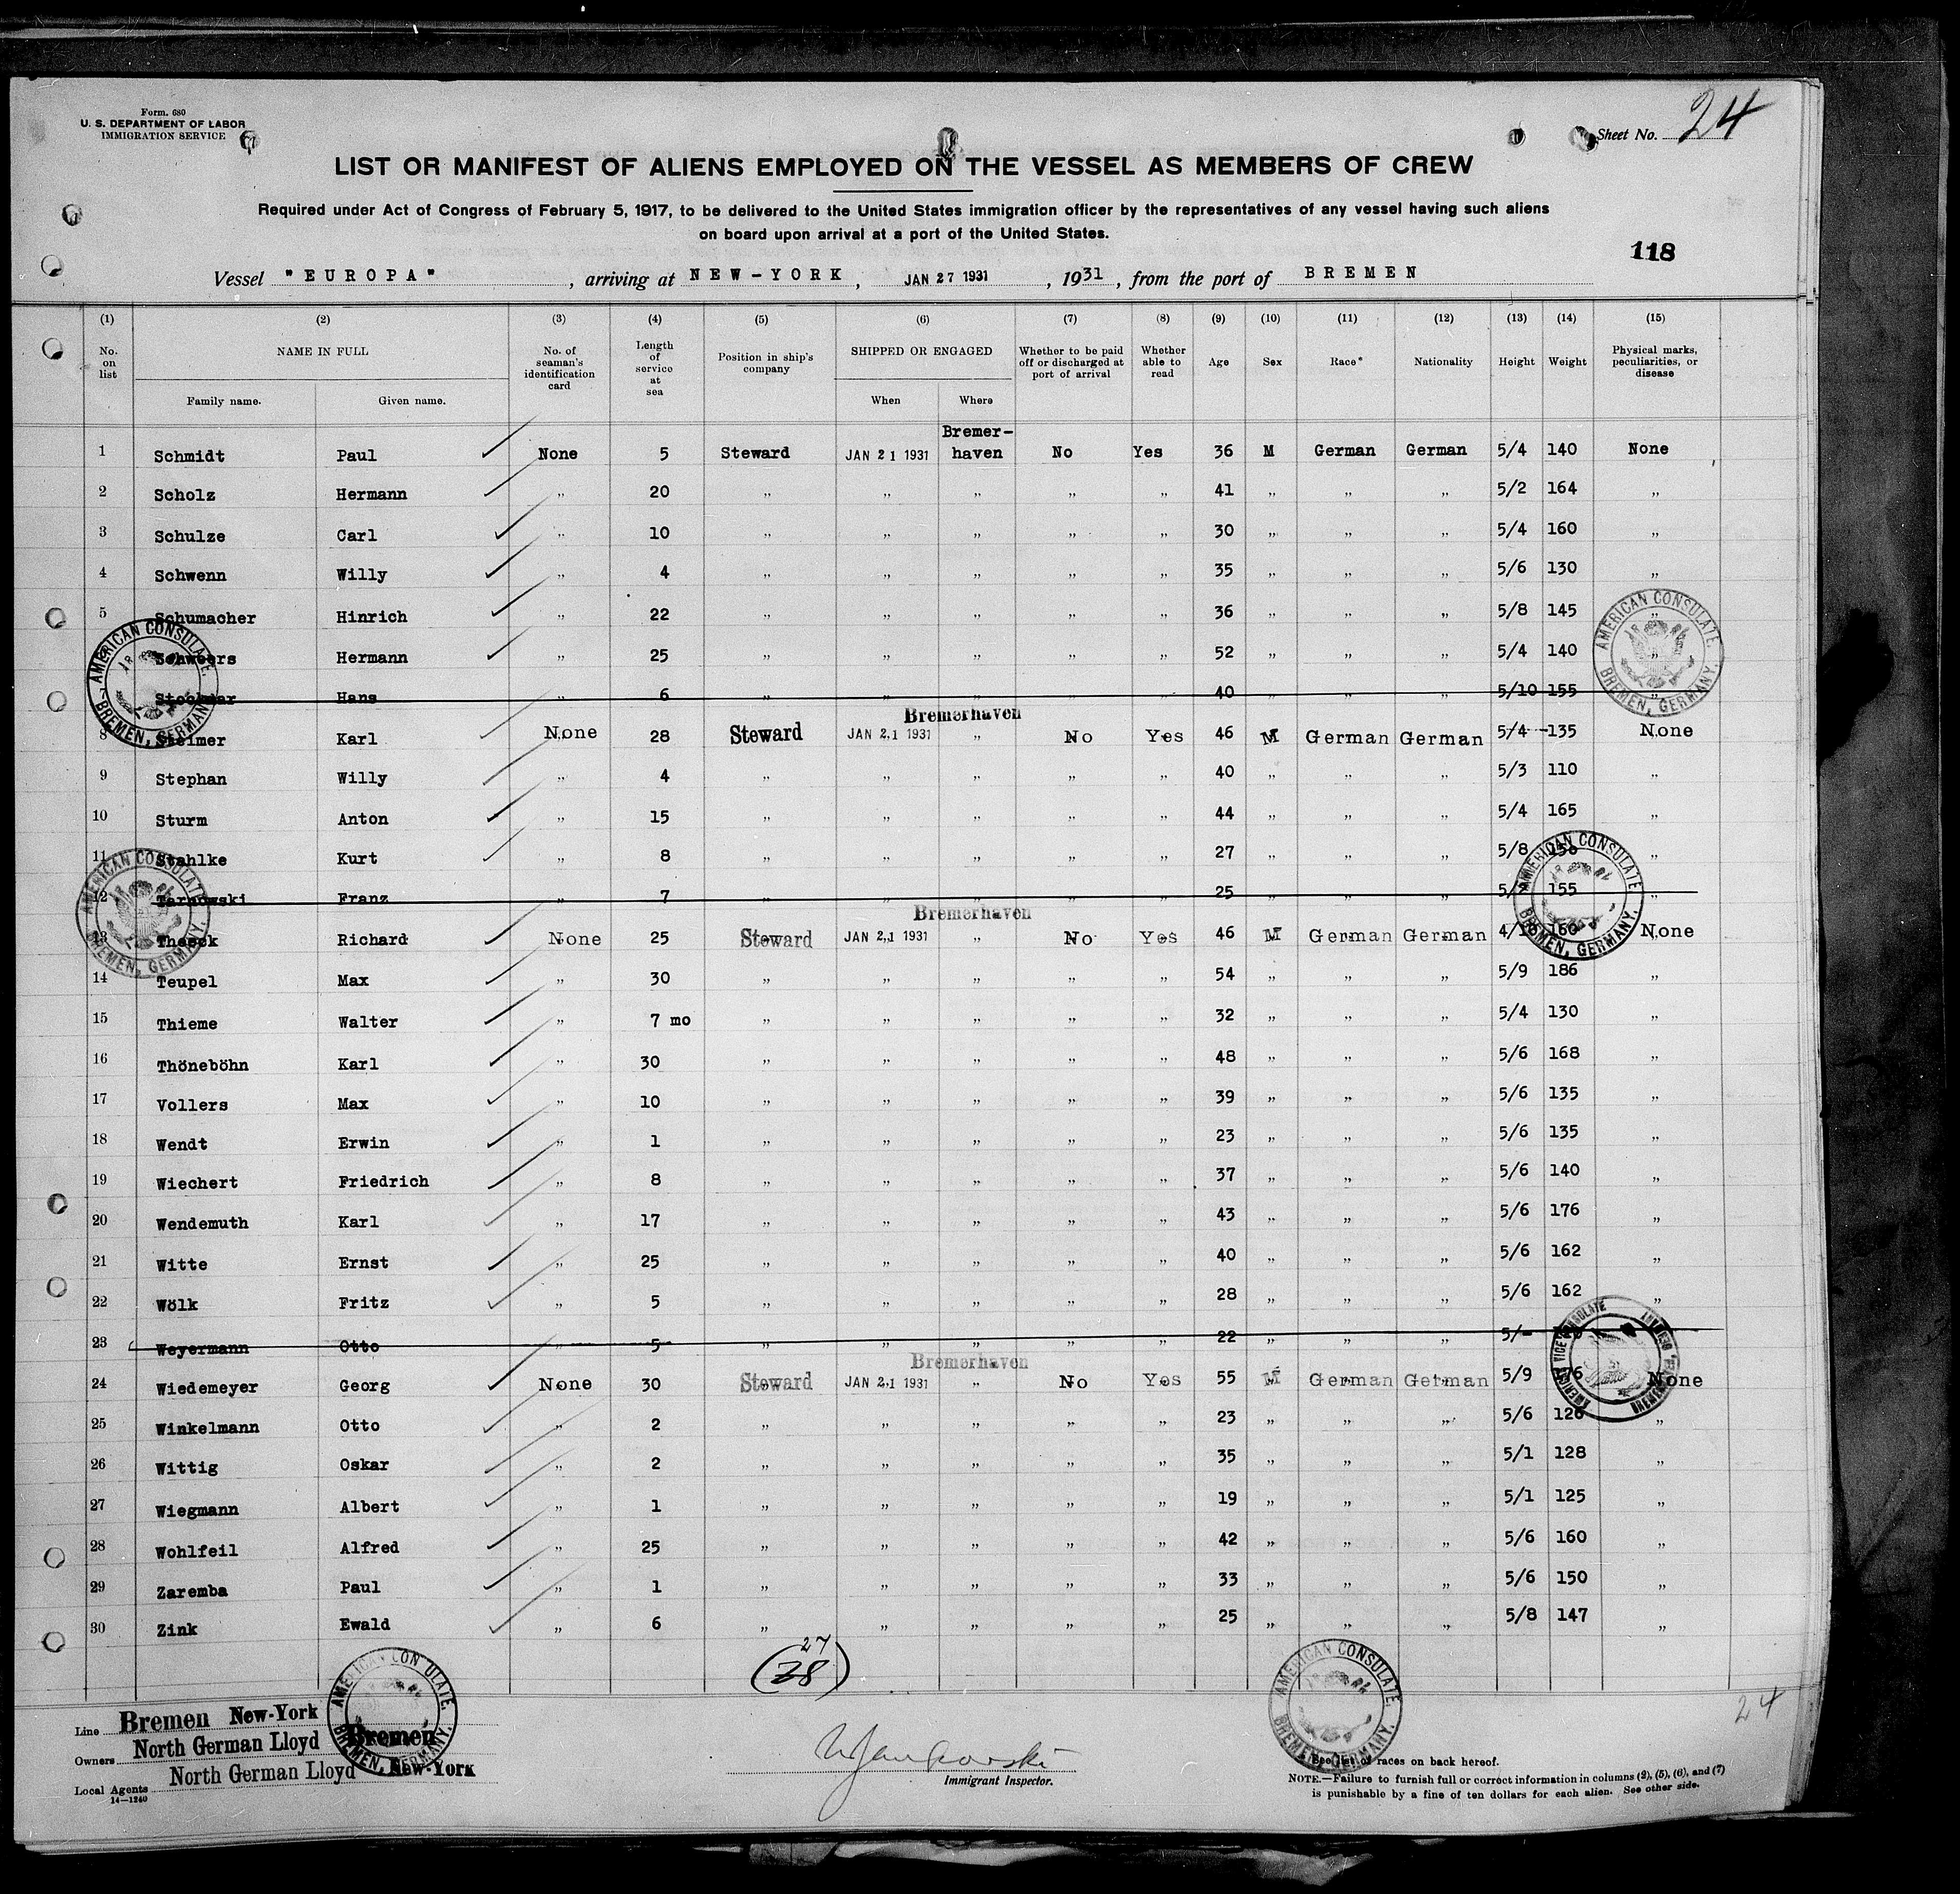 Form. 680
U. S. DEPARTMENT OF LABOR
IMMIGRATION SERVICE
Sheet No. 24
LIST OR MANIFEST OF ALIENS EMPLOYED ON THE VESSEL AS MEMBERS OF CREW
Required under Act of Congress of February 5, 1917, to be delivered to the United States immigration officer by the representatives of any vessel having such aliens
on board upon arrival at a port of the United States.
118
Vessel "EUROPA", arriving at NEW-YORK, JAN 27 1931, 1931, from the port of BREMEN
(1) (2) (3) (4) (5) (6) (7) (8) (9) (10) (11) (12) (13) (14) (15)
No. on list NAME IN FULL Family name. Given name. No. of seaman's identification card Length of service at sea Position in ship's company SHIPPED OR ENGAGED When Where Whether to be paid off or discharged at port of arrival Whether able to read Age Sex Race* Nationality Height Weight Physical marks, peculiarities, or disease
1 Schmidt Paul None 5 Steward JAN 21 1931 Bremer-haven No Yes 36 M German German 5/4 140 None
2 Scholz Hermann „ 20 „ „ „ „ „ 41 „ „ „ 5/2 164 „
3 Schulze Carl „ 10 „ „ „ „ „ 30 „ „ „ 5/4 160 „
4 Schwenn Willy „ 4 „ „ „ „ „ 35 „ „ „ 5/6 130 „
5 Schumacher Hinrich „ 22 „ „ „ „ „ 36 „ „ „ 5/8 145 „
Schweers Hermann „ 25 „ „ „ „ „ 52 „ „ „ 5/4 140 „
7 Stockmar Hans „ 6 „ „ „ „ „ 40 „ „ „ 5/10 155 „
Bremerhaven
8 Steimer Karl None 28 Steward JAN 21 1931 „ No Yes 46 M German German 5/4 135 None
9 Stephan Willy „ 4 „ „ „ „ „ 40 „ „ „ 5/3 110 „
10 Sturm Anton „ 15 „ „ „ „ „ 44 „ „ „ 5/4 165 „
11 Stahlke Kurt „ 8 „ „ „ „ „ 27 „ „ „ 5/8 „
12 Tarnowski Franz „ 7 „ „ „ „ „ 25 „ „ „ 155 „
Bremerhaven
13 Theeck Richard None 25 Steward JAN 21 1931 „ No Yes 46 M German German 160 None
14 Teupel Max „ 30 „ „ „ „ „ 54 „ „ „ 5/9 186 „
15 Thieme Walter „ 7 mo „ „ „ „ „ 32 „ „ „ 5/4 130 „
16 Thöneböhn Karl „ 30 „ „ „ „ „ 48 „ „ „ 5/6 168 „
17 Vollers Max „ 10 „ „ „ „ „ 39 „ „ „ 5/6 135 „
18 Wendt Erwin „ 1 „ „ „ „ „ 23 „ „ „ 5/6 135 „
19 Wiechert Friedrich „ 8 „ „ „ „ „ 37 „ „ „ 5/6 140 „
20 Wendemuth Karl „ 17 „ „ „ „ „ 43 „ „ „ 5/6 176 „
21 Witte Ernst „ 25 „ „ „ „ „ 40 „ „ „ 5/6 162 „
22 Wölk Fritz „ 5 „ „ „ „ „ 28 „ „ „ 5/6 162 „
23 Weyermann Otto „ 5 „ „ „ „ „ 22 „ „ „ 5/-
Bremerhaven
24 Wiedemeyer Georg None 30 Steward JAN 21 1931 „ No Yes 55 M German German 5/9 176 None
25 Winkelmann Otto „ 2 „ „ „ „ „ 23 „ „ „ 5/6 126 „
26 Wittig Oskar „ 2 „ „ „ „ „ 35 „ „ „ 5/1 128 „
27 Wiegmann Albert „ 1 „ „ „ „ „ 19 „ „ „ 5/1 125 „
28 Wohlfeil Alfred „ 25 „ „ „ „ „ 42 „ „ „ 5/6 160 „
29 Zaremba Paul „ 1 „ „ „ „ „ 33 „ „ „ 5/6 150 „
30 Zink Ewald „ 6 „ „ „ „ „ 25 „ „ „ 5/8 147 „
27
(28)
AMERICAN CONSULATE. BREMEN, GERMANY.
AMERICAN CONSULATE. BREMEN, GERMANY.
AMERICAN CONSULATE. BREMEN, GERMANY.
AMERICAN CONSULATE. BREMEN, GERMANY.
AMERICAN VICE CONSULATE
AMERICAN CONSULATE. BREMEN, GERMANY.
AMERICAN CONSULATE. BREMEN, GERMANY.
24
Line Bremen New-York
Owners North German Lloyd Bremen
Local Agents North German Lloyd New-York
14-1240
Immigrant Inspector.
* See list of races on back hereof.
NOTE.—Failure to furnish full or correct information in columns (2), (5), (6), and (7)
is punishable by a fine of ten dollars for each alien. See other side.